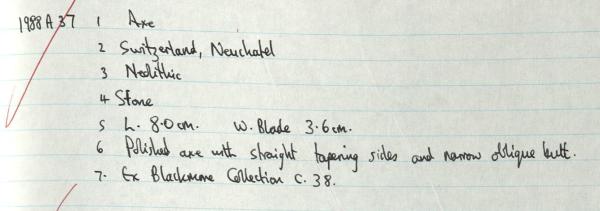 1988 A 37 1 Axe
2 Switzerland, Neuchatel
3 Neolithic
4 Stone
5 L. 8.0cm. W. Blade 3.6cm.
6 Polished axe with straight tapering sides and narrow oblique butt.
7. Ex Blackmore Collection C. 38.